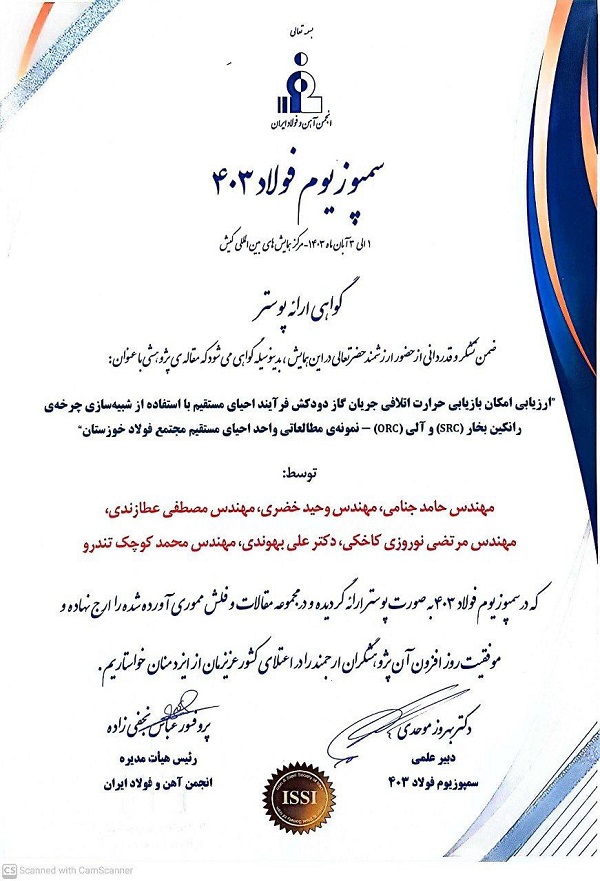 بسمه تعالی
انجمن آهن و فولاد ایران
سمپوزیوم فولاد ۴۰۳
۱ الی ۳ آبان ماه ۱۴۰۳-مرکز همایش های بین المللی کیش
گواهی ارائه پوستر
ضمن تشکر و قدردانی از حضور ارزشمند حضرتعالی در این همایش، بدینوسیله گواهی می شود که مقاله ی پژوهشی با عنوان:
"ارزیابی امکان بازیابی حرارت اتلافی جریان گاز دودکش فرآیند احیای مستقیم با استفاده از شبیه‌سازی چرخه‌ی
رانکین بخار (SRC) و آلی (ORC) – نمونه‌ی مطالعاتی واحد احیای مستقیم مجتمع فولاد خوزستان"
توسط:
مهندس حامد جنامی، مهندس وحید خضری، مهندس مصطفی عطازندی،
مهندس مرتضی نوروزی کاخکی، دکتر علی بهوندی، مهندس محمد کوچک تندرو
که در سمپوزیوم فولاد ۴۰۳ به صورت پوستر ارائه گردیده و در مجموعه مقالات و فلش مموری آورده شده را ارج نهاده و
موفقیت روز افزون آن پژوهشگران ارجمند را در اعتلای کشور عزیزمان از ایزد منان خواستاریم.
دکتر بهروز موحدی
دبیر علمی
سمپوزیوم فولاد ۴۰۳
پروفسور عباس نجفی زاده
رئیس هیأت مدیره
انجمن آهن و فولاد ایران
ISSI
CS Scanned with CamScanner